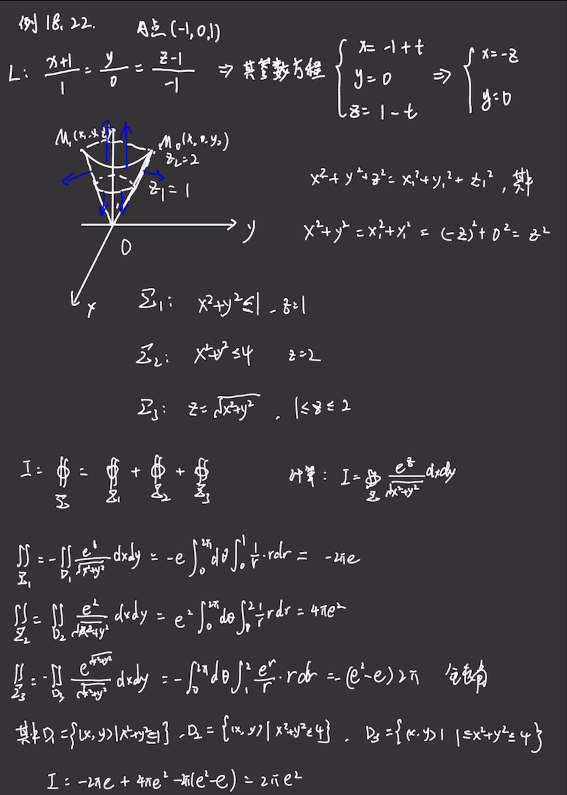 例18.22. A点(-1,0,1)
L: \frac{x+1}{1} = \frac{y}{0} = \frac{z-1}{-1} ⇒ 其参数方程 { x=-1+t, y=0, z=1-t ⇒ { x=-z, y=0
M₁(x₁,y₁,z) M₀(x,y,z)
z₂=2
z₁=1
O y
x
x²+y²+z²=x₁²+y₁²+z₁², 其中
x²+y²=x₁²+y₁²=(-z)²+0²=z²
Σ₁: x²+y²≤1, z=1
Σ₂: x²+y²≤4 z=2
Σ₃: z=√(x²+y²), 1≤z≤2
I=∯_Σ=∯_Σ₁+∯_Σ₂+∯_Σ₃ 计算: I=∯_Σ \frac{e^z}{√(x²+y²)}dxdy
∬_Σ₁=-∬_D₁ \frac{e^1}{√(x²+y²)}dxdy=-e∫₀^{2π}dθ∫₀^1 \frac{1}{r}·rdr=-2πe
∬_Σ₂=∬_D₂ \frac{e²}{√(x²+y²)}dxdy=e²∫₀^{2π}dθ∫₀^2 \frac{1}{r}rdr=4πe²
∬_Σ₃=-∬_D₃ \frac{e^{√(x²+y²)}}{√(x²+y²)}dxdy=-∫₀^{2π}dθ∫₁^2 \frac{e^r}{r}·rdr=-(e²-e)2π
其中D₁={(x,y)|x²+y²≤1}, D₂={(x,y)|x²+y²≤4}, D₃={(x,y)|1≤x²+y²≤4}
I=-2πe+4πe²-2π(e²-e)=2πe²